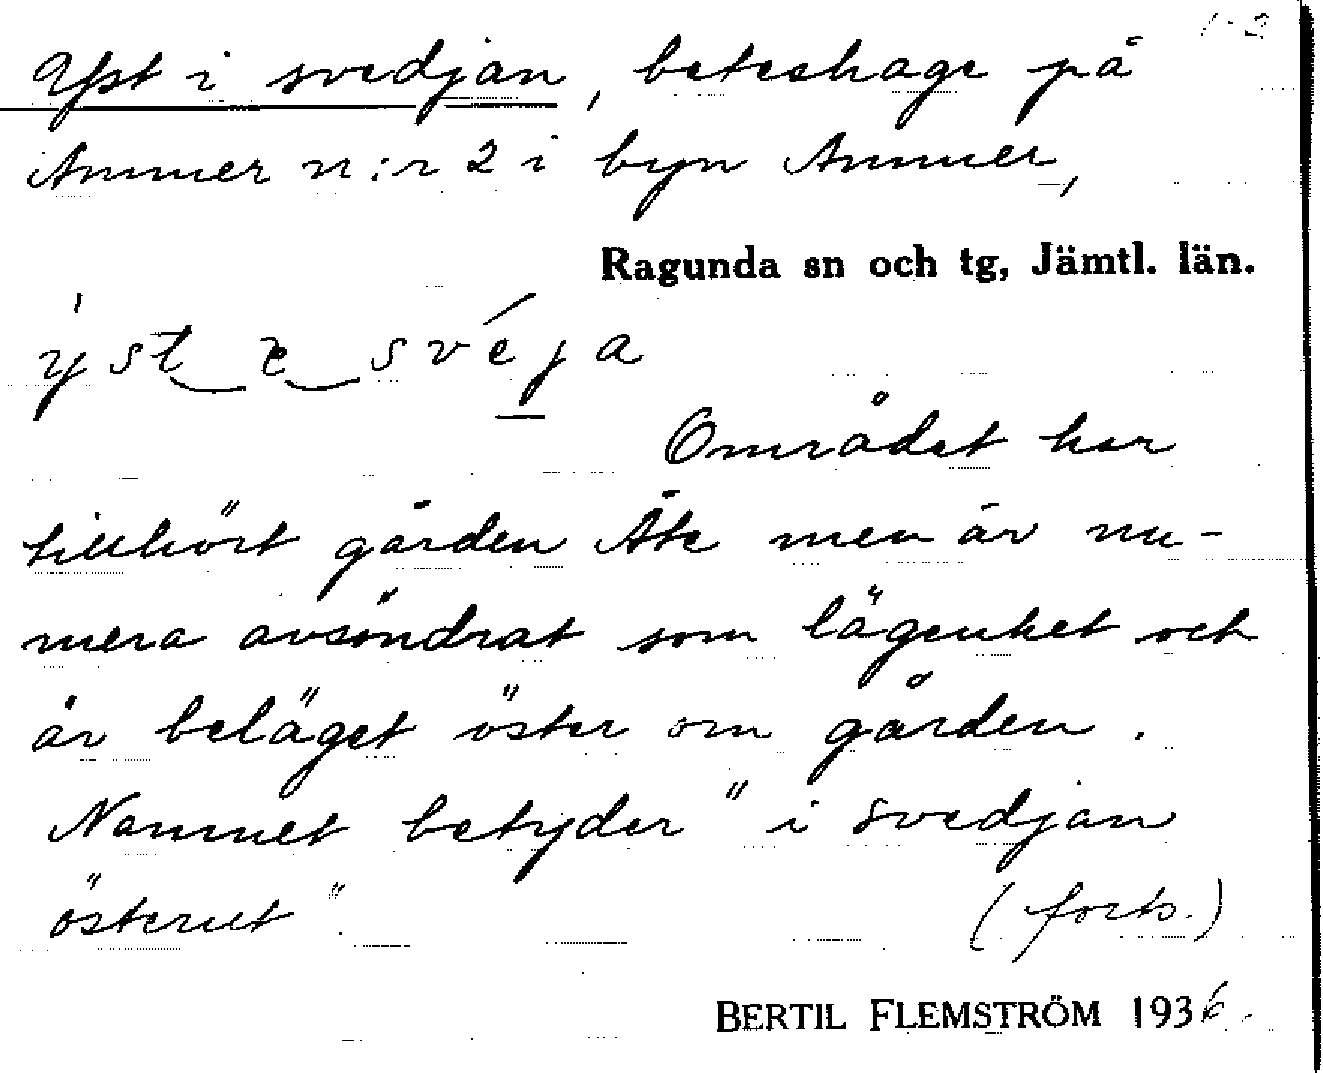 1-2
Yst i svedjan, beteshage på
Ammer n:r 2 i byn Ammer,
Ragunda sn och tg, Jämtl. län.
ýst e svéja
Området har
tillhört gården Åte men är nu-
mera avsöndrat som lägenhet och
är beläget öster om gården.
Namnet betyder "i svedjan
österut".
(forts.)
BERTIL FLEMSTRÖM 1936.